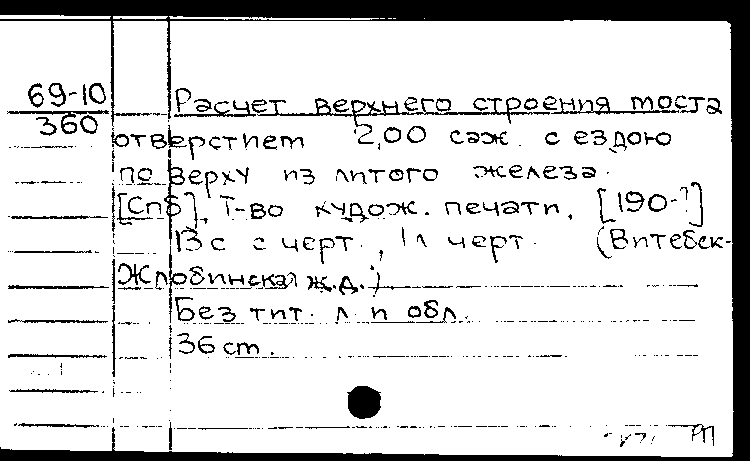 69-10
360
Расчет верхнего строения моста
отверстием 2,00 саж. с ездою
по верху из литого железа.
[Спб], Т-во худож. печати, [190-?]
13 с с черт., 1 л черт. (Витебск-
Жлобинская ж.д.)
Без тит. л и обл.
36 ст.
РП